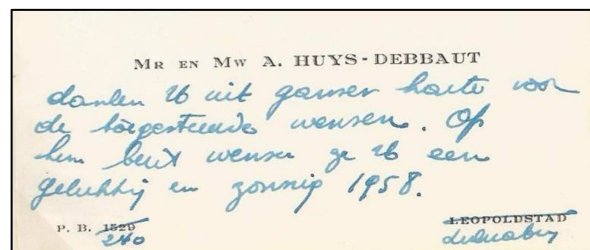 MR EN MW A. HUYS-DEBBAUT
danken U uit ganser harte voor
de toegestuurde wensen. Op
hun beurt wensen ze U een
gelukkig en zonnig 1958.
P. B. 1529 LEOPOLDSTAD
240